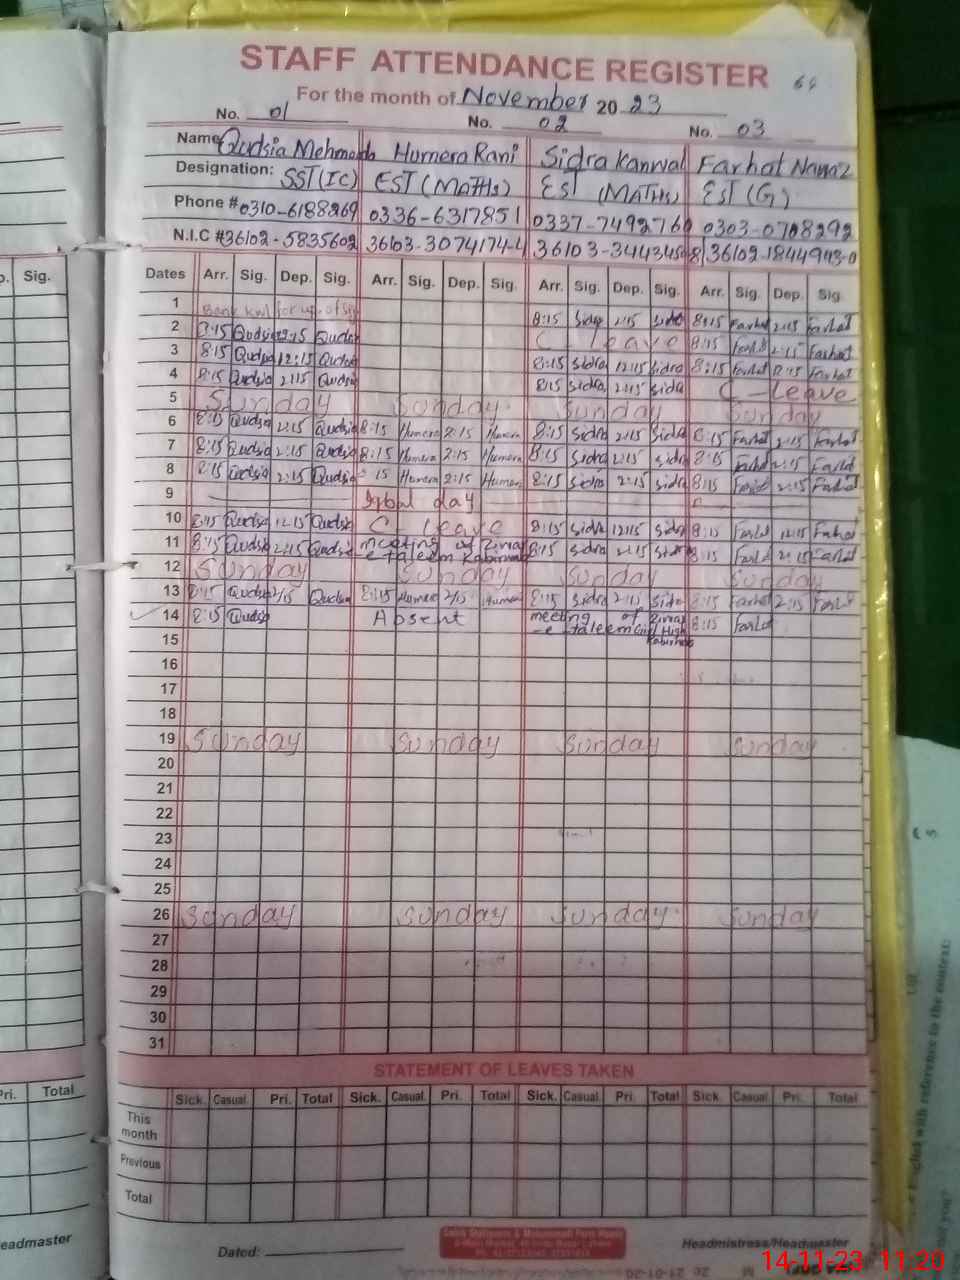 STAFF ATTENDANCE REGISTER
For the month of November 20 23
No. 01 No. 02 No. 03
Name Qudsia Mehmood Humera Rani Sidra Kanwal Farhat Nawaz
Designation: SST(IC) EST (MATHS) EST (MATHS) EST (G)
Phone # 0310-6188269 0336-6317851 0337-7492760 0303-0708292
N.I.C # 36102-5835602 36103-3074174-4 36102-1844943-0
p. Sig. Dates Arr. Sig. Dep. Sig. Arr. Sig. Dep. Sig. Arr. Sig. Dep. Sig. Arr. Sig. Dep. Sig.
1 8:15 Sidra 2:15 Sidra 8:15 Farhat 2:15 Farhat
2 8:15 Qudsia 2:15 Qudsia C - leave 8:15 Farhat 2:15 Farhat
3 8:15 Qudsia 12:15 Qudsia 8:15 Sidra 12:15 Sidra 8:15 Farhat 12:15 Farhat
4 8:15 Qudsia 2:15 Qudsia 8:15 Sidra 2:15 Sidra C - Leave
5 Sunday Sunday Sunday Sunday
6 8:15 Qudsia 2:15 Qudsia 8:15 Humera 2:15 Humera 8:15 Sidra 2:15 Sidra 8:15 Farhat 2:15 Farhat
7 8:15 Qudsia 2:15 Qudsia 8:15 Humera 2:15 Humera 8:15 Sidra 2:15 Sidra 8:15 Farhat 2:15 Farhat
8 8:15 Qudsia 2:15 Qudsia 8:15 Humera 2:15 Humera 8:15 Sidra 2:15 Sidra 8:15 Farhat 2:15 Farhat
9 Iqbal day
10 8:15 Qudsia 12:15 Qudsia C - Leave 8:15 Sidra 12:15 Sidra 8:15 Farhat 12:15 Farhat
11 8:15 Qudsia 2:15 Qudsia meeting of 8:15 Sidra 2:15 Sidra 8:15 Farhat 2:15 Farhat
e taleem Kabirwala
12 Sunday Sunday Sunday Sunday
13 8:15 Qudsia 2:15 Qudsia 8:15 Humera 2:15 Humera 8:15 Sidra 2:15 Sidra 8:15 Farhat 2:15 Farhat
14 8:15 Qudsia Absent meeting of 8:15 Farhat
- e taleem High
15
16
17
18
19 Sunday Sunday Sunday Sunday
20
21
22
23
24
25
26 Sunday Sunday Sunday Sunday
27
28
29
30
31
STATEMENT OF LEAVES TAKEN
Pri. Total Sick. Casual. Pri. Total Sick. Casual. Pri. Total Sick. Casual. Pri. Total Sick. Casual. Pri. Total
This month
Previous
Total
eadmaster Dated: Headmistress/Headmaster
14-11-23 11:20